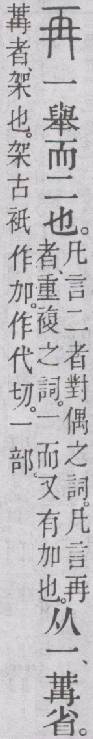 再 一舉而二也。凡言二者對偶之詞。凡言再者、重複之詞。一而又有加也。从一、冓省。
冓者、架也。架古衹作加。作代切。一部